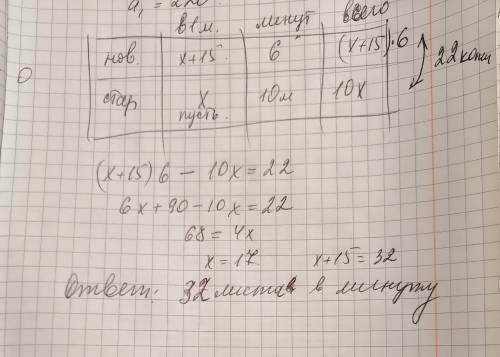 a₁ = 2
в 1 м. минут всего
нов. x+15 6 (x+15)·6
стар x 10м 10x 22 копии
пусть.
(x+15)6 − 10x = 22
6x+90−10x = 22
68 = 4x
x = 17 x+15 = 32
Ответ: 32 листав в минуту